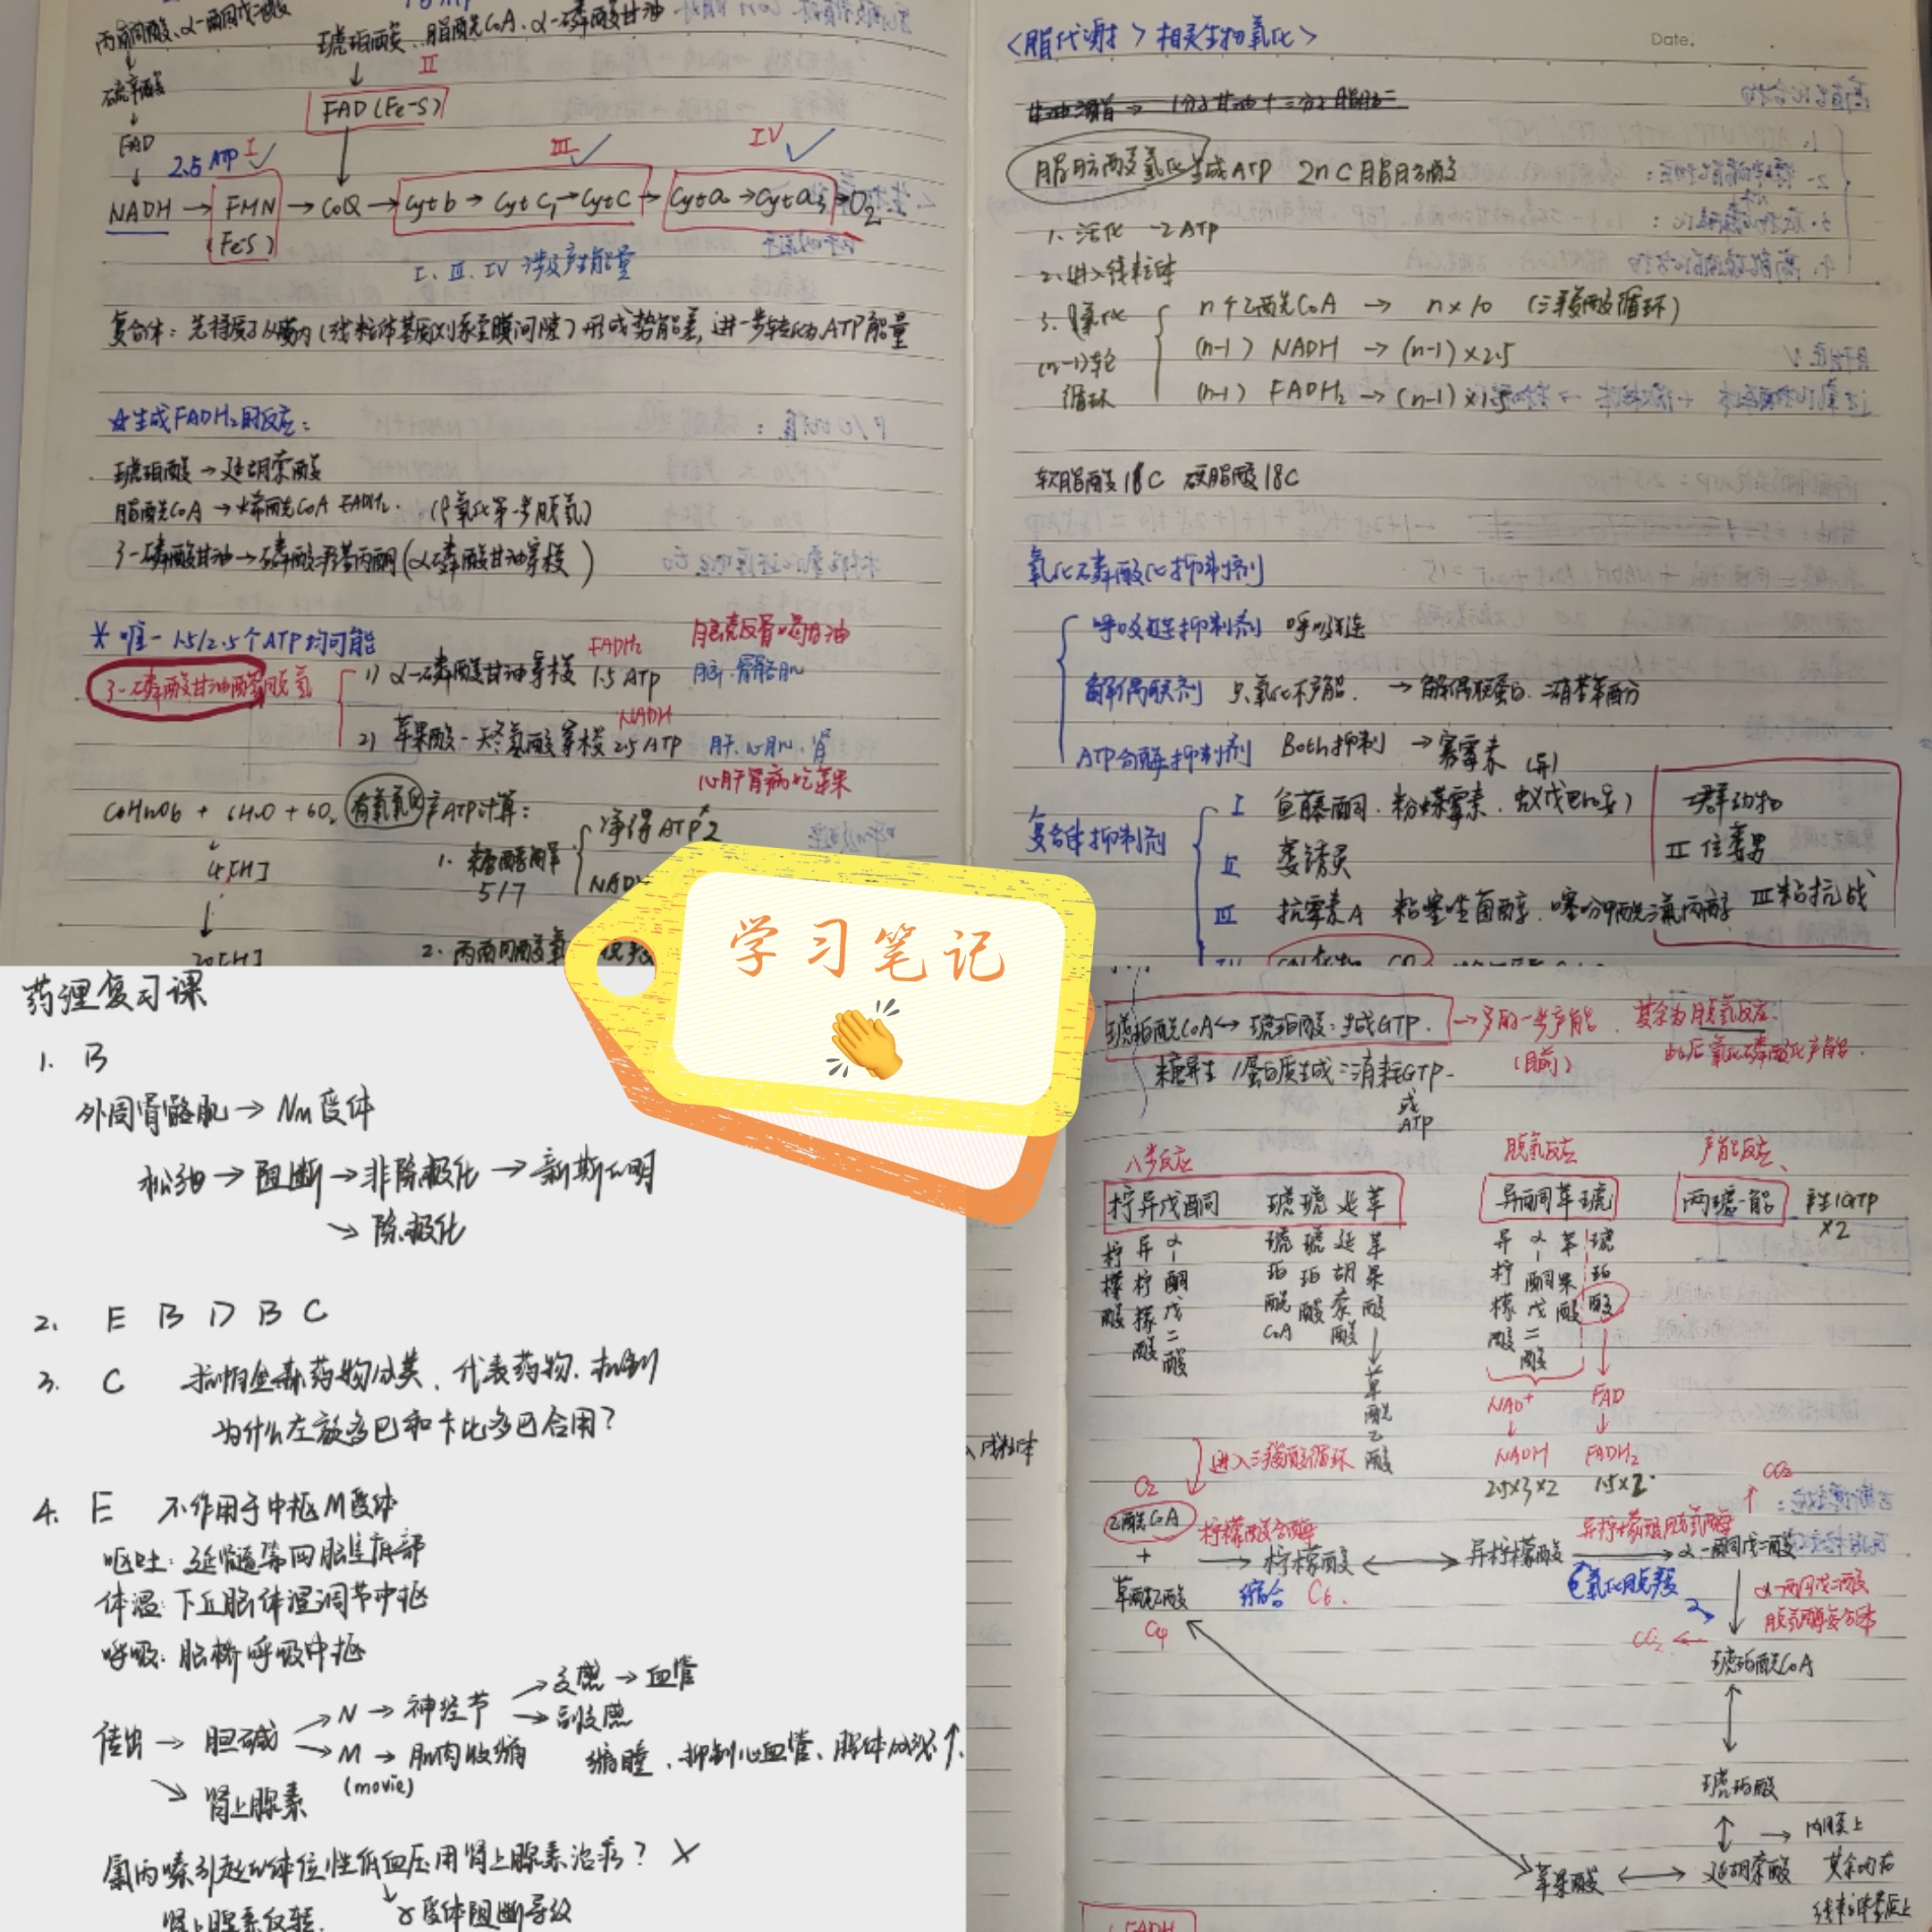 丙酮酸、α-酮戊二酸
琥珀酸、脂酰CoA、α-磷酸甘油
硫辛酸
II
FAD(Fe-S)
FAD
2.5 ATP I III IV
NADH → FMN → CoQ → Cyt b → Cyt C₁ → Cyt C → Cyt a → Cyt a₃ → O₂
(Fe-S)
I、III、IV 涉及产生能量
☆生成FADH₂的反应:
琥珀酸 → 延胡索酸
脂酰CoA → 烯酰CoA FADH₂. (β氧化第一步脱氢)
3-磷酸甘油 → 磷酸二羟丙酮(α-磷酸甘油穿梭)
* 唯一 1.5/2.5个ATP均可能
3-磷酸甘油醛脱氢
1) α-磷酸甘油穿梭 1.5 ATP
FADH₂
脑.骨骼肌
2) 苹果酸-天冬氨酸穿梭 2.5 ATP
NADH
肝.心肌.肾
心肝肾病吃苹果
有氧氧化产ATP计算:
4[H]
1. 糖酵解
5/7
净得ATP 2
20[H]
<脂代谢>相关生物氧化>
Date.
脂肪酸氧化生成ATP 2n C脂肪酸
1. 活化 -2ATP
2. 进入线粒体
3. β氧化
(n-1)轮
循环
n个乙酰CoA → n×10 (三羧酸循环)
(n-1) NADH → (n-1)×2.5
(n-1) FADH₂ → (n-1)×1.5
软脂酸18C 硬脂酸18C
氧化磷酸化抑制剂
呼吸链抑制剂 呼吸链
解偶联剂 只氧化不产能. → 解偶联蛋白.二硝基苯酚
ATP合酶抑制剂 Both抑制 → 寡霉素
复合体抑制剂
I 鱼藤酮.粉蝶霉素.
II 萎锈灵
III 抗霉素A
II 住萎男
III 粘抗战
学习笔记
👏
药理复习课
1. B
外周骨骼肌 → Nm受体
阻断 → 非除极化 → 新斯的明
↘ 除极化
2. E B D B C
3. C 抗帕金森药物分类、代表药物.机制
为什么左旋多巴和卡比多巴合用?
4. E 不作用于中枢M受体
体温:下丘脑体温调节中枢
呼吸:脑桥呼吸中枢
传出 → 胆碱
N → 神经节
交感 → 血管
副交感
M → 肌肉收缩
(movie)
缩瞳、抑制心血管、腺体分泌↑.
肾上腺素
氯丙嗪引起的体位性低血压用肾上腺素治疗? ×
α受体阻断导致
琥珀酰CoA ↔ 琥珀酸:生成GTP.
其余为脱氢反应.
此后氧化磷酸化产能.
(目前)
糖异生/蛋白质生成:消耗GTP
或
ATP
八步反应 脱氢反应 产能反应
柠异戊酮 琥琥延苹 异酮苹琥 两琥一能 产生1GTP
×2
柠檬酸 异柠檬酸 α-酮戊二酸
琥珀酰CoA 琥珀酸 延胡索酸 苹果酸
异柠檬酸 α-酮戊二酸 苹果酸 琥珀酸
草酰乙酸
NAD⁺ FAD
NADH FADH₂
2.5×3×2 1.5×2
O₂
进入三羧酸循环
CO₂
乙酰CoA
+
草酰乙酸
C₄
柠檬酸合酶
缩合 C₆.
柠檬酸 异柠檬酸 α-酮戊二酸
异柠檬酸脱氢酶
氧化脱羧
α-酮戊二酸
脱氢酶复合体
CO₂
琥珀酰CoA
琥珀酸
苹果酸 延胡索酸
内膜上
其余均在
线粒体基质上
FADH